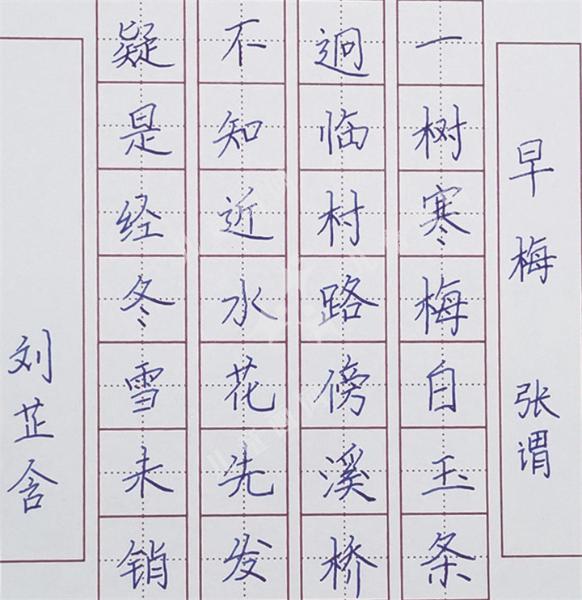 早梅 张谓
一树寒梅自玉条
迥临村路傍溪桥
不知近水花先发
疑是经冬雪未销
刘芷含